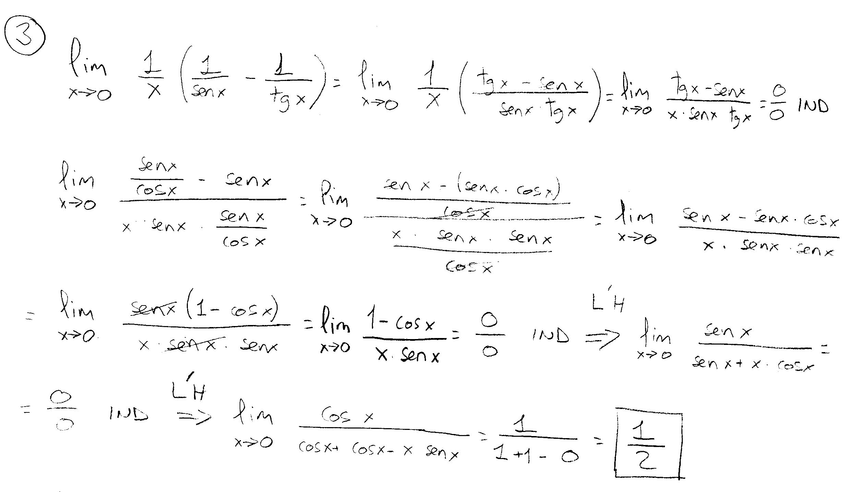 ③
lim x→0 1/x (1/senx - 1/tgx) = lim x→0 1/x (tgx - senx / senx · tgx) = lim x→0 tgx - senx / x · senx tgx = 0/0 IND
lim x→0 (senx/cosx - senx) / (x · senx · senx/cosx) = lim x→0 ((sen x - (senx · cosx)) / cosx) / ((x · senx · senx) / cosx) = lim x→0 (sen x - senx · cosx) / (x · senx · senx)
= lim x→0 senx (1 - cosx) / (x · senx · senx) = lim x→0 (1 - cosx) / (x · senx) = 0/0 IND L'H ⇒ lim x→0 senx / (senx + x · cosx) =
= 0/0 IND L'H ⇒ lim x→0 cos x / (cosx + cosx - x senx) = 1 / (1+1-0) = 1/2